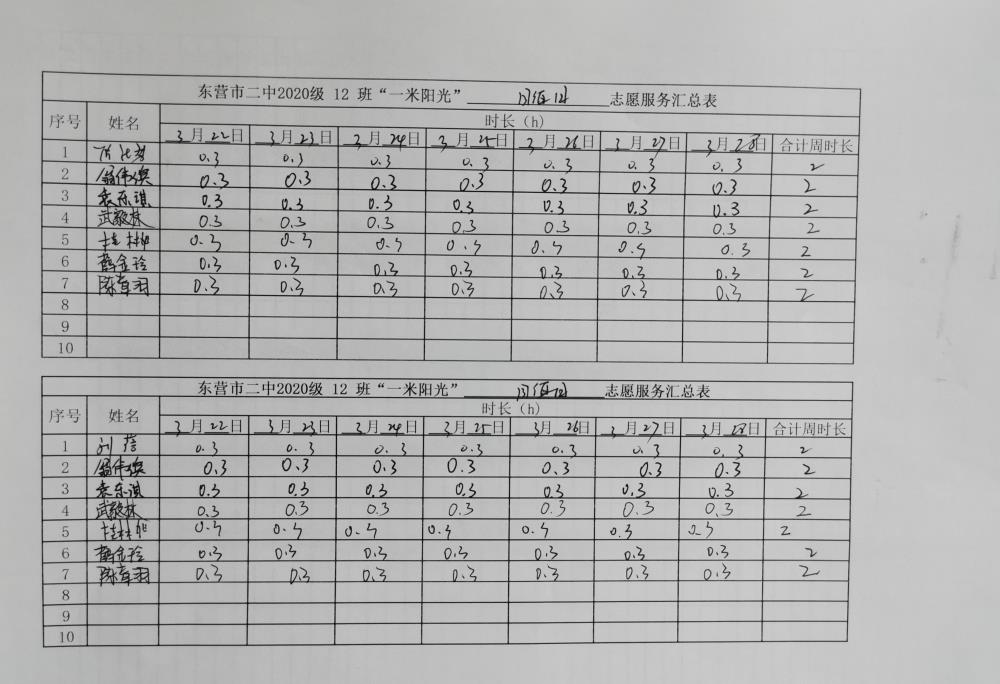 东营市二中2020级 12 班“一米阳光” 志愿服务汇总表
序号 姓名 时长（h）
3月22日 3月23日 3月24日 3月25日 3月26日 3月27日 3月28日 合计周时长
1 0.3 0.3 0.3 0.3 0.3 0.3 0.3 2
2 0.3 0.3 0.3 0.3 0.3 0.3 0.3 2
3 袁东琪 0.3 0.3 0.3 0.3 0.3 0.3 0.3 2
4 武毅林 0.3 0.3 0.3 0.3 0.3 0.3 0.3 2
5 0.3 2
6 薛金玲 0.3 0.3 0.3 0.3 0.3 0.3 0.3 2
7 陈章羽 0.3 0.3 0.3 0.3 0.3 0.3 0.3 2
8
9
10
东营市二中2020级 12 班“一米阳光” 志愿服务汇总表
序号 姓名 时长（h）
3月22日 3月23日 3月24日 3月25日 3月26日 3月27日 3月28日 合计周时长
1 0.3 0.3 0.3 0.3 0.3 0.3 0.3 2
2 0.3 0.3 0.3 0.3 0.3 0.3 0.3 2
3 袁东琪 0.3 0.3 0.3 0.3 0.3 0.3 0.3 2
4 武毅林 0.3 0.3 0.3 0.3 0.3 0.3 0.3 2
5 2
6 薛金玲 0.3 0.3 0.3 0.3 0.3 0.3 0.3 2
7 陈章羽 0.3 0.3 0.3 0.3 0.3 0.3 0.3 2
8
9
10